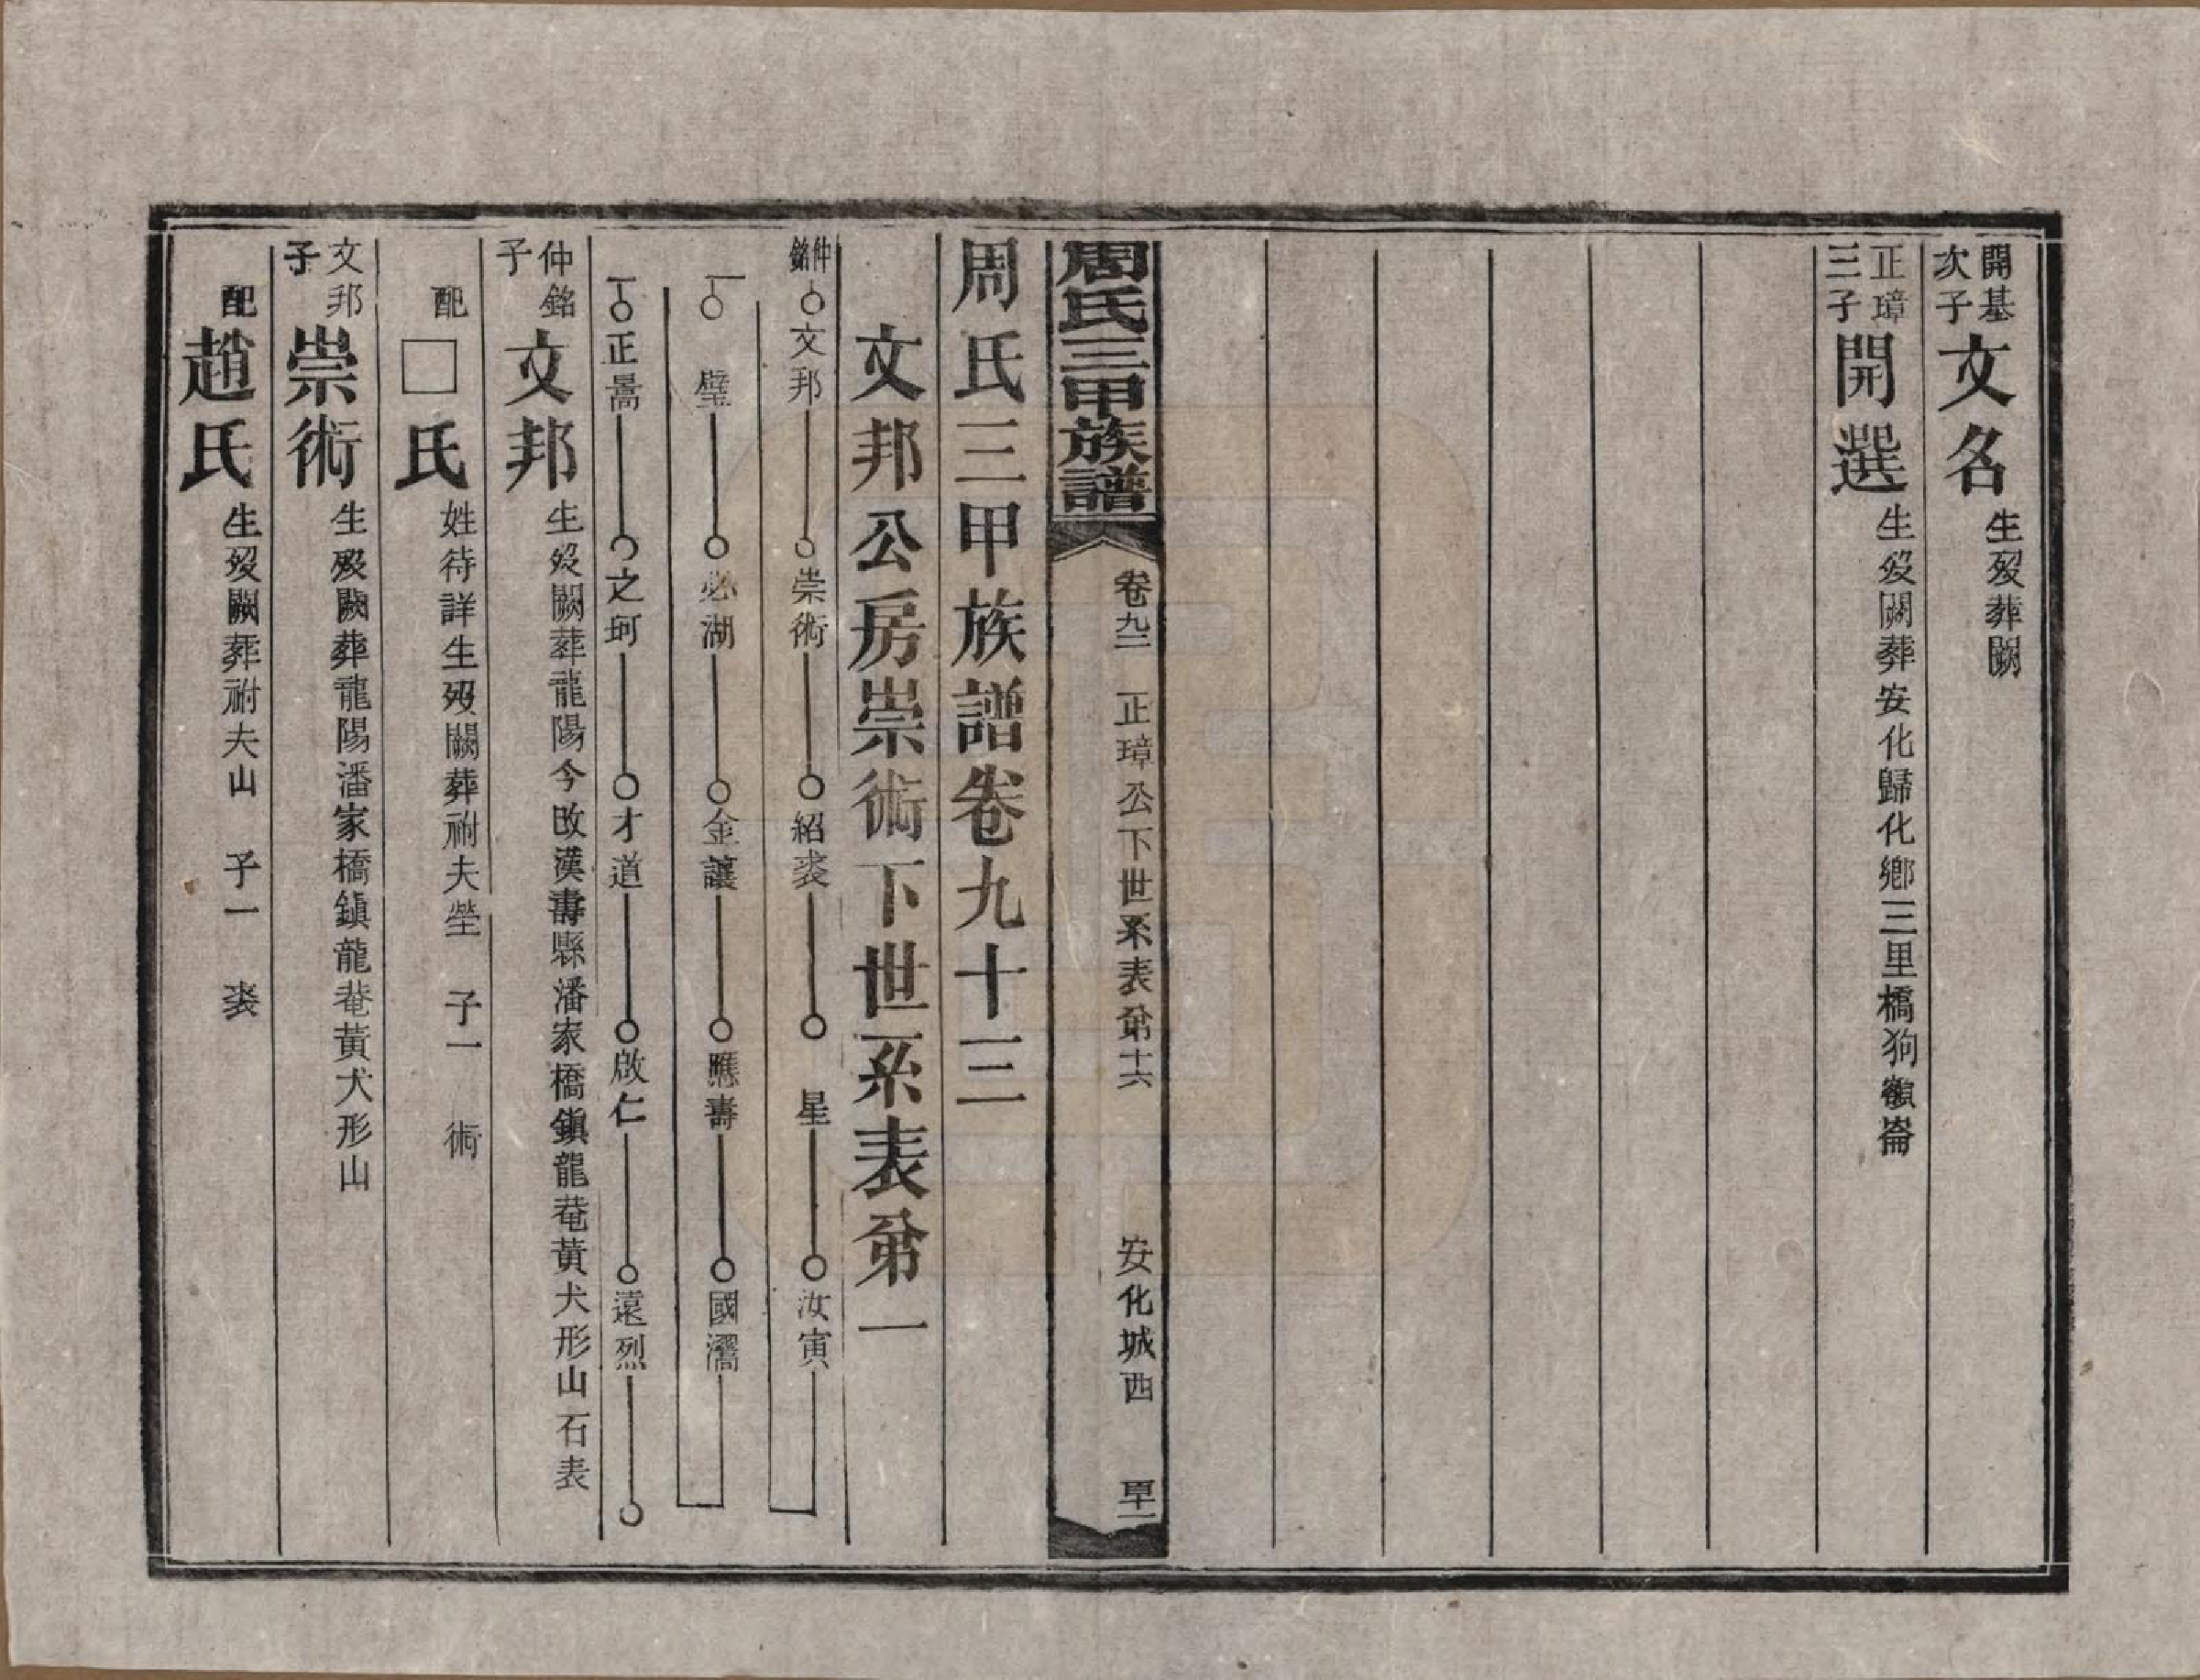 開基次子 文名 生歿葬闕
正璋三子 開選 生歿闕葬安化歸化鄉三里橋狗額崙
周氏三甲族譜 卷九二 正璋公下世系表第十六 安化城西
周氏三甲族譜卷九十三
文邦公房崇術下世系表第一
仲銘 文邦 崇術 紹裘 星 汝寅
璧 必湖 金讓 應壽 國濤
正暠 之珂 才道 啟仁 遠烈
仲銘子 文邦 生歿闕葬龍陽今改漢壽縣潘家橋鎮龍菴黃犬形山石表
配 □氏 姓待詳生歿闕葬祔夫塋 子一 術
文邦子 崇術 生歿闕葬龍陽潘家橋鎮龍菴黃犬形山
配 趙氏 生歿闕葬祔夫山 子一 裘